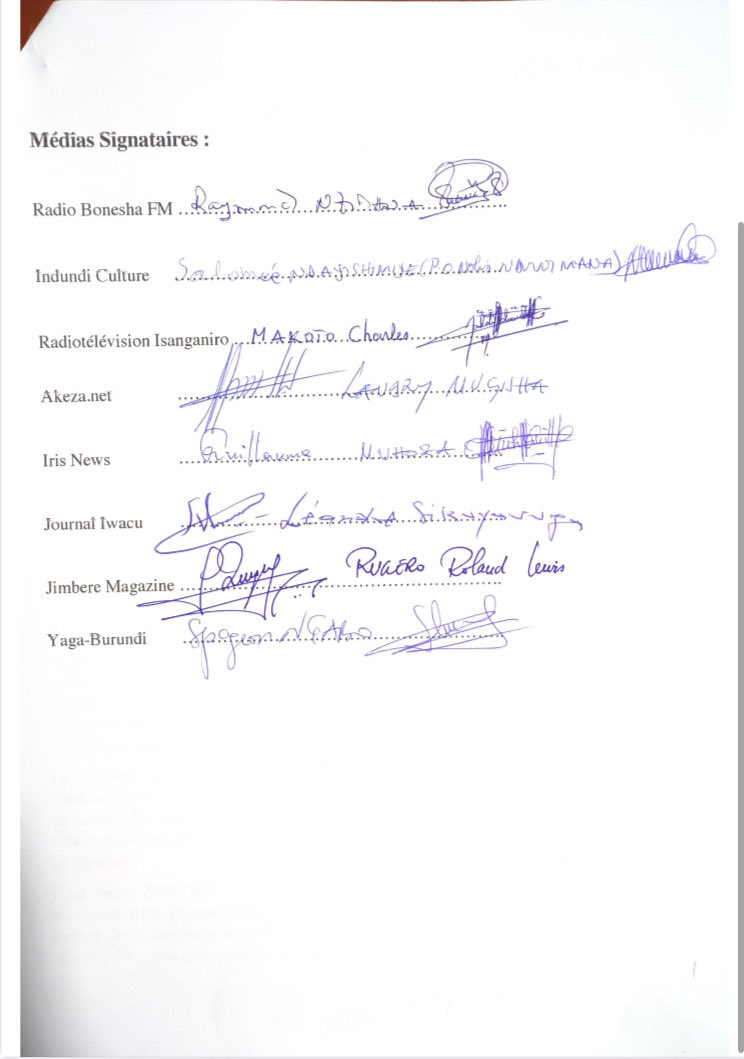 Médias Signataires :
Radio Bonesha FM Raymond
Indundi Culture Salomé NDAYISHIMIYE (P.O
Radiotélévision Isanganiro MAKOTO Charles
Akeza.net LANDRY MUGISHA
Iris News Guillaume MUHOZA
Journal Iwacu Léandre Sikuyavuga
Jimbere Magazine RUGERO Roland Lewis
Yaga-Burundi Spageon NGABO